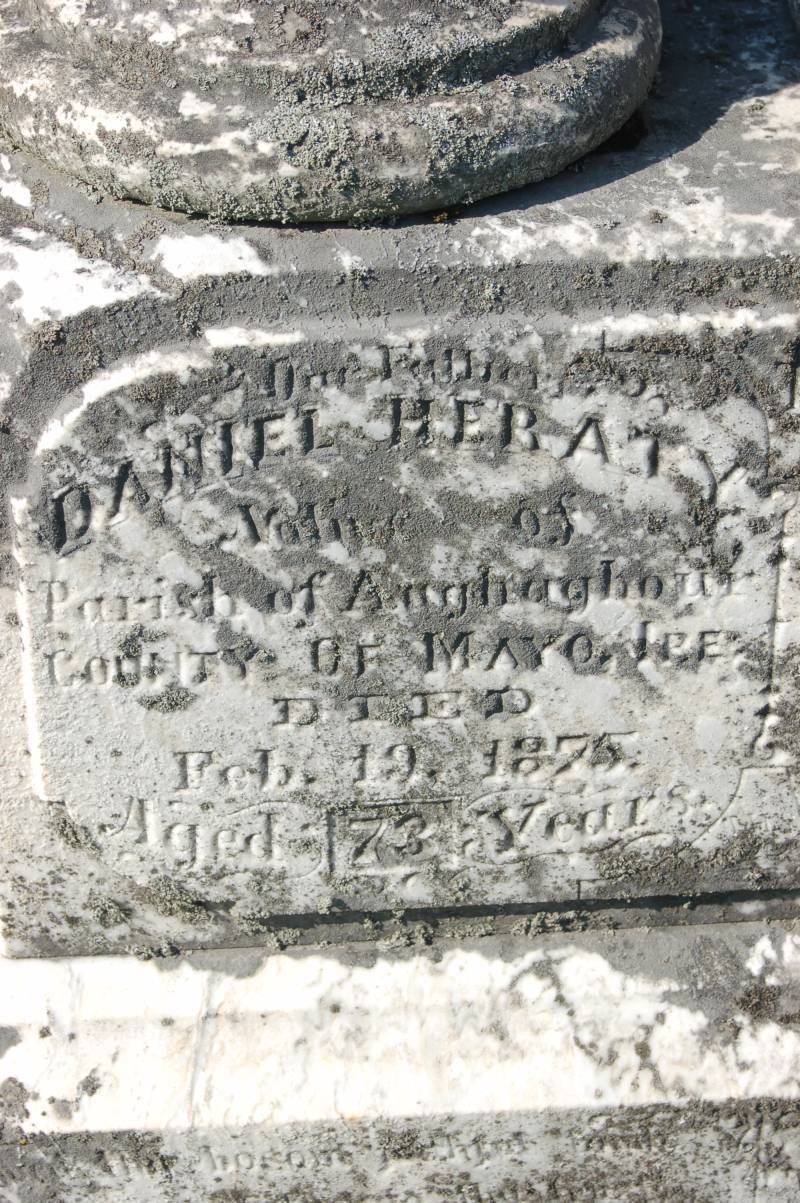 Our Father
DANIEL HERATY
Native of
Parish of Aughaghour
COUNTY OF MAYO, IRE.
DIED
Feb. 19. 1875.
Aged 73 Years.
bosom